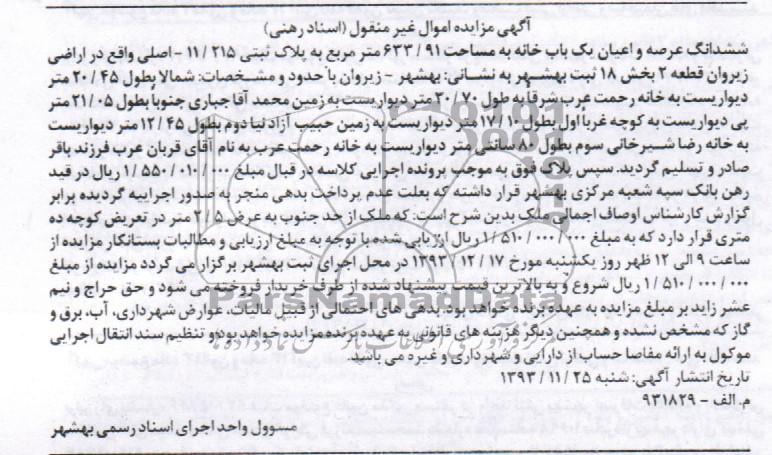 آگهی مزایده اموال غیر منقول (اسناد رهنی)
ششدانگ عرصه و اعیان یک باب خانه به مساحت ۹۱ / ۶۳۳ متر مربع به پلاک ثبتی ۲۱۵ / ۱۱ - اصلی واقع در اراضی
زیروان قطعه ۲ بخش ۱۸ ثبت بهشهر به نشانی: بهشهر - زیروان با حدود و مشخصات: شمالا بطول ۴۵ / ۲۰ متر
دیواریست به خانه رحمت عرب شرقا به طول ۷۰ / ۳۰ متر دیواریست به زمین محمد آقاجباری جنوبا بطول ۰۵ / ۲۱ متر
پی دیواریست به کوچه غربا اول بطول ۱۰ / ۱۷ متر دیواریست به زمین حبیب آزادنیا دوم بطول ۴۵ / ۱۲ متر دیواریست
به خانه رضا شیرخانی سوم بطول ۸۰ سانتی متر دیواریست به خانه رحمت عرب به نام آقای قربان عرب فرزند باقر
صادر و تسلیم گردید. سپس پلاک فوق به موجب پرونده اجرایی کلاسه در قبال مبلغ ۰۰۰ / ۰۱۰ / ۵۵۰ / ۱ ریال در قید
رهن بانک سپه شعبه مرکزی بهشهر قرار داشته که بعلت عدم پرداخت بدهی منجر به صدور اجراییه گردیده برابر
گزارش کارشناس اوصاف اجمالی ملک بدین شرح است: که ملک از حد جنوب به عرض ۵ / ۲ متر در تعریض کوچه ده
متری قرار دارد که به مبلغ ۰۰۰ / ۰۰۰ / ۵۱۰ / ۱ ریال ارزیابی شده با توجه به مبلغ ارزیابی و مطالبات بستانکار مزایده از
ساعت ۹ الی ۱۲ ظهر روز یکشنبه مورخ ۱۷ / ۱۲ / ۱۳۹۳ در محل اجرای ثبت بهشهر برگزار می گردد مزایده از مبلغ
۰۰۰ / ۰۰۰ / ۵۱۰ / ۱ ریال شروع و به بالاترین قیمت پیشنهاد شده از طرف خریدار فروخته می شود و حق حراج و نیم
عشر زاید بر مبلغ مزایده به عهده برنده خواهد بود. بدهی های احتمالی از قبیل مالیات، عوارض شهرداری، آب، برق و
گاز که مشخص نشده و همچنین دیگر هزینه های قانونی به عهده برنده مزایده خواهد بود و تنظیم سند انتقال اجرایی
موکول به ارائه مفاصا حساب از دارایی و شهرداری و غیره می باشد.
تاریخ انتشار آگهی: شنبه ۲۵ / ۱۱ / ۱۳۹۳
م. الف - ۹۳۱۸۲۹
مسوول واحد اجرای اسناد رسمی بهشهر
ParsNamadData